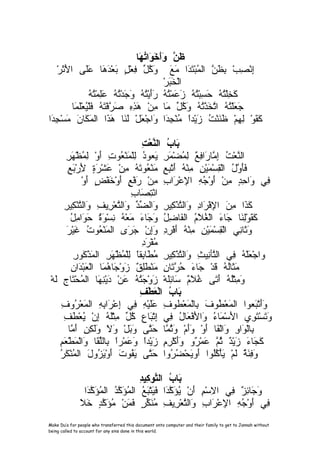 ظَنَّ وَأَخَوَاتُهَا
إِنْصِبْ بِظَنَّ المُبْتَدَا مَعَ وَكُلَّ فِعْلٍ بَعْدَهَا عَلَى الأَثَرْ
الْخَبَرْ
كَخِلْتُهُ حَسِبْتُهُ زَعَمْتُهُ رَأَيْتُهُ وَجَدْتُهُ عَلِمْتُهُ
جَعَلْتُهُ اتَّخَذْتُهُ وَكُلِّ مَا مِنْ هَذِهِ صَرَّفْتَهُ فَلْيُعْلَمَا
كَقَوْ لِهِمْ ظَنَنْتُ زَيْداً مُنْجِدَا وَاجْعَلْ لَنَا هَذَا المَكَانَ مَسْجِدَا
بَابُ النَّعْتِ
النَّعْتُ إِمَّارَافِعٌ لِمُضْمَرِ يَعودُ لِلمَنْعُوتِ أَوْ لِمُظْهَرِ
فَأَوَّلُ القِسْمَيْنِ مِنْهُ أَتْبِعِ مَنْعُوتَهُ مِنْ عَشْرَةٍ لأَرْبَعِ
فِي وَاحِدٍ مِنْ أَوْجُهِ الإِعْرَابِ مِنْ رَفْعٍ أَوْخَفْضٍ أَوْ
انْتِصَابِ
كَذَا مِنَ الإِفْرَادِ وَالتَّذْكِيرِ وَالضِّدِّ وَالتَّعْرِيفِ وَالتَّنْكِيرِ
كَقَوْلِنَا جَاءَ الغُلاَمُ الفَاضِلُ وَجَاءَ مَعْهُ نِسْوَةٌ حَوَامِلُ
وَثَانِي القِسْمَيْنِ مِنْهُ أَفْرِدِ وَإِنْ جَرَى المَنْعُوتُ غَيْرَ
مُفْرَدِ
وَاجْعَلْهُ فِي التَّأْنِيثِ وَالتَّذْكِيرِ مُطَابِقاً لِلْمُظْهَرِ المَذْكُورِ
مِثَالُهُ قَدْ جَاءَ حُرَّتَانِ مُنْطَلِقٌ زَوْجَاهُمَا العَبْدَانِ
وَمِثْلُهُ أَتَى غُلاَمٌ سَائِلَهْ زَوْجَتُهُ عَنْ دَيْنِهَا المُحْتَاجِ لَهْ
بَابُ الْعَطْفِ
وَأَتْبَعوا المَعْطُوفَ بِالمَعْطُوفِ عَلَيْهِ فِي إِعْرَابِهِ المَعْرُوفِ
وَتَسْتَوِي الأَسْمَاءُ وَالأَفْعَالُ فِي إِتْبَاعِ كُلٍّ مِثْلَهُ إِنْ يُعْطَفِ
بِالْوَاوِ وَالفَا أَوْ وَأَمْ وَثُمَّا حَتَّى وَبَلْ وَلاَ وَلَكِنْ أَمَّا
كَجَاءَ زَيْدٌ ثُمَّ عَمْرٌو وَأَكْرِمِ زَيْداً وَعَمْراً بِاللِّقَا وَالمَطْعَمِ
وَفِئَةٌ لَمْ يَأْكُلُوا أَويَحْضُرُوا حَتَّى يَفُوتَ أَوْيَزُولَ المُنْكَرُ
بَابُ التَّوكِيدِ
وَجَائِزٌ فِي الاِسْمِ أَنْ يُؤَكَّدَا فَيَتْبَعُ المُؤَكِّدُ المُؤَكَّدَا
فِي أَوْجُهِ الإِعْرَابِ وَالتَّعْرِيفِ مُنَكَّرٍ فَمَنْ مُؤَكَّدٍ خَلاَ
Make Du'a for people who transferred this document onto computer and their family to get to Jannah without
being called to account for any sins done in this world.